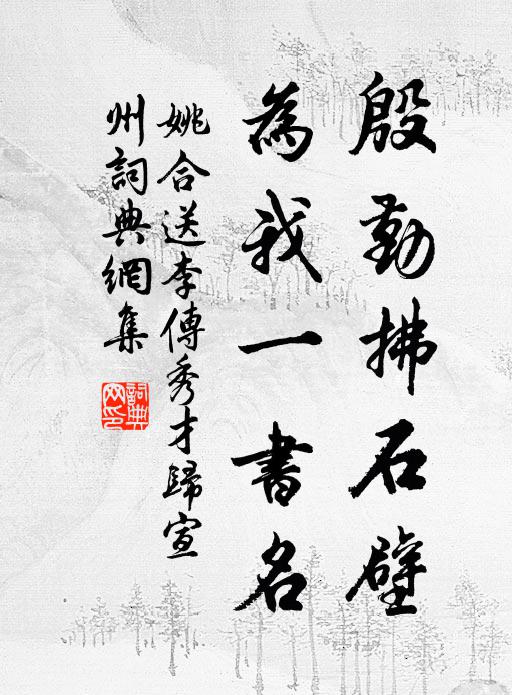 殷勤拂石壁
為我一書名
姚合送李傳秀才歸宣
州詞典網集
詞典網印